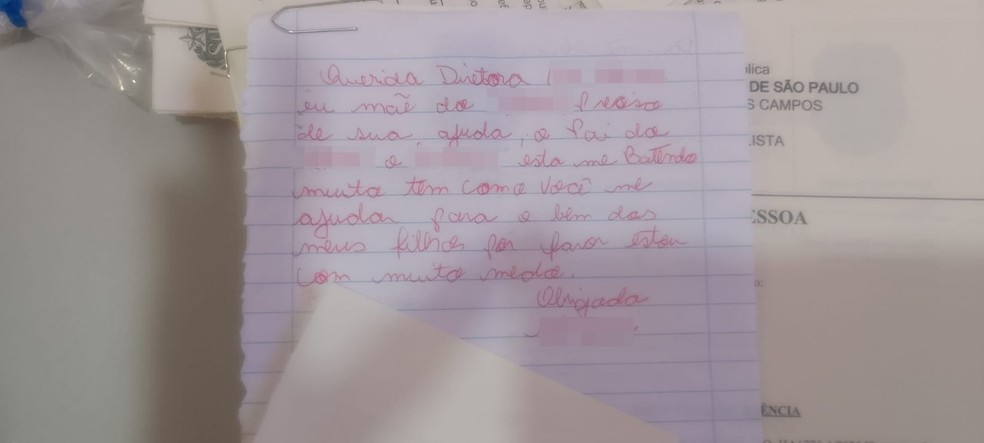 Querida Diretora
eu mãe do Preciso
de sua ajuda, o Pai do
o esta me Batendo
muito tem como você me
ajudar para o bem dos
meus filhos por favor estou
com muito medo.
Obrigada
ública
DE SÃO PAULO
S CAMPOS
LISTA
ESSOA
ÊNCIA